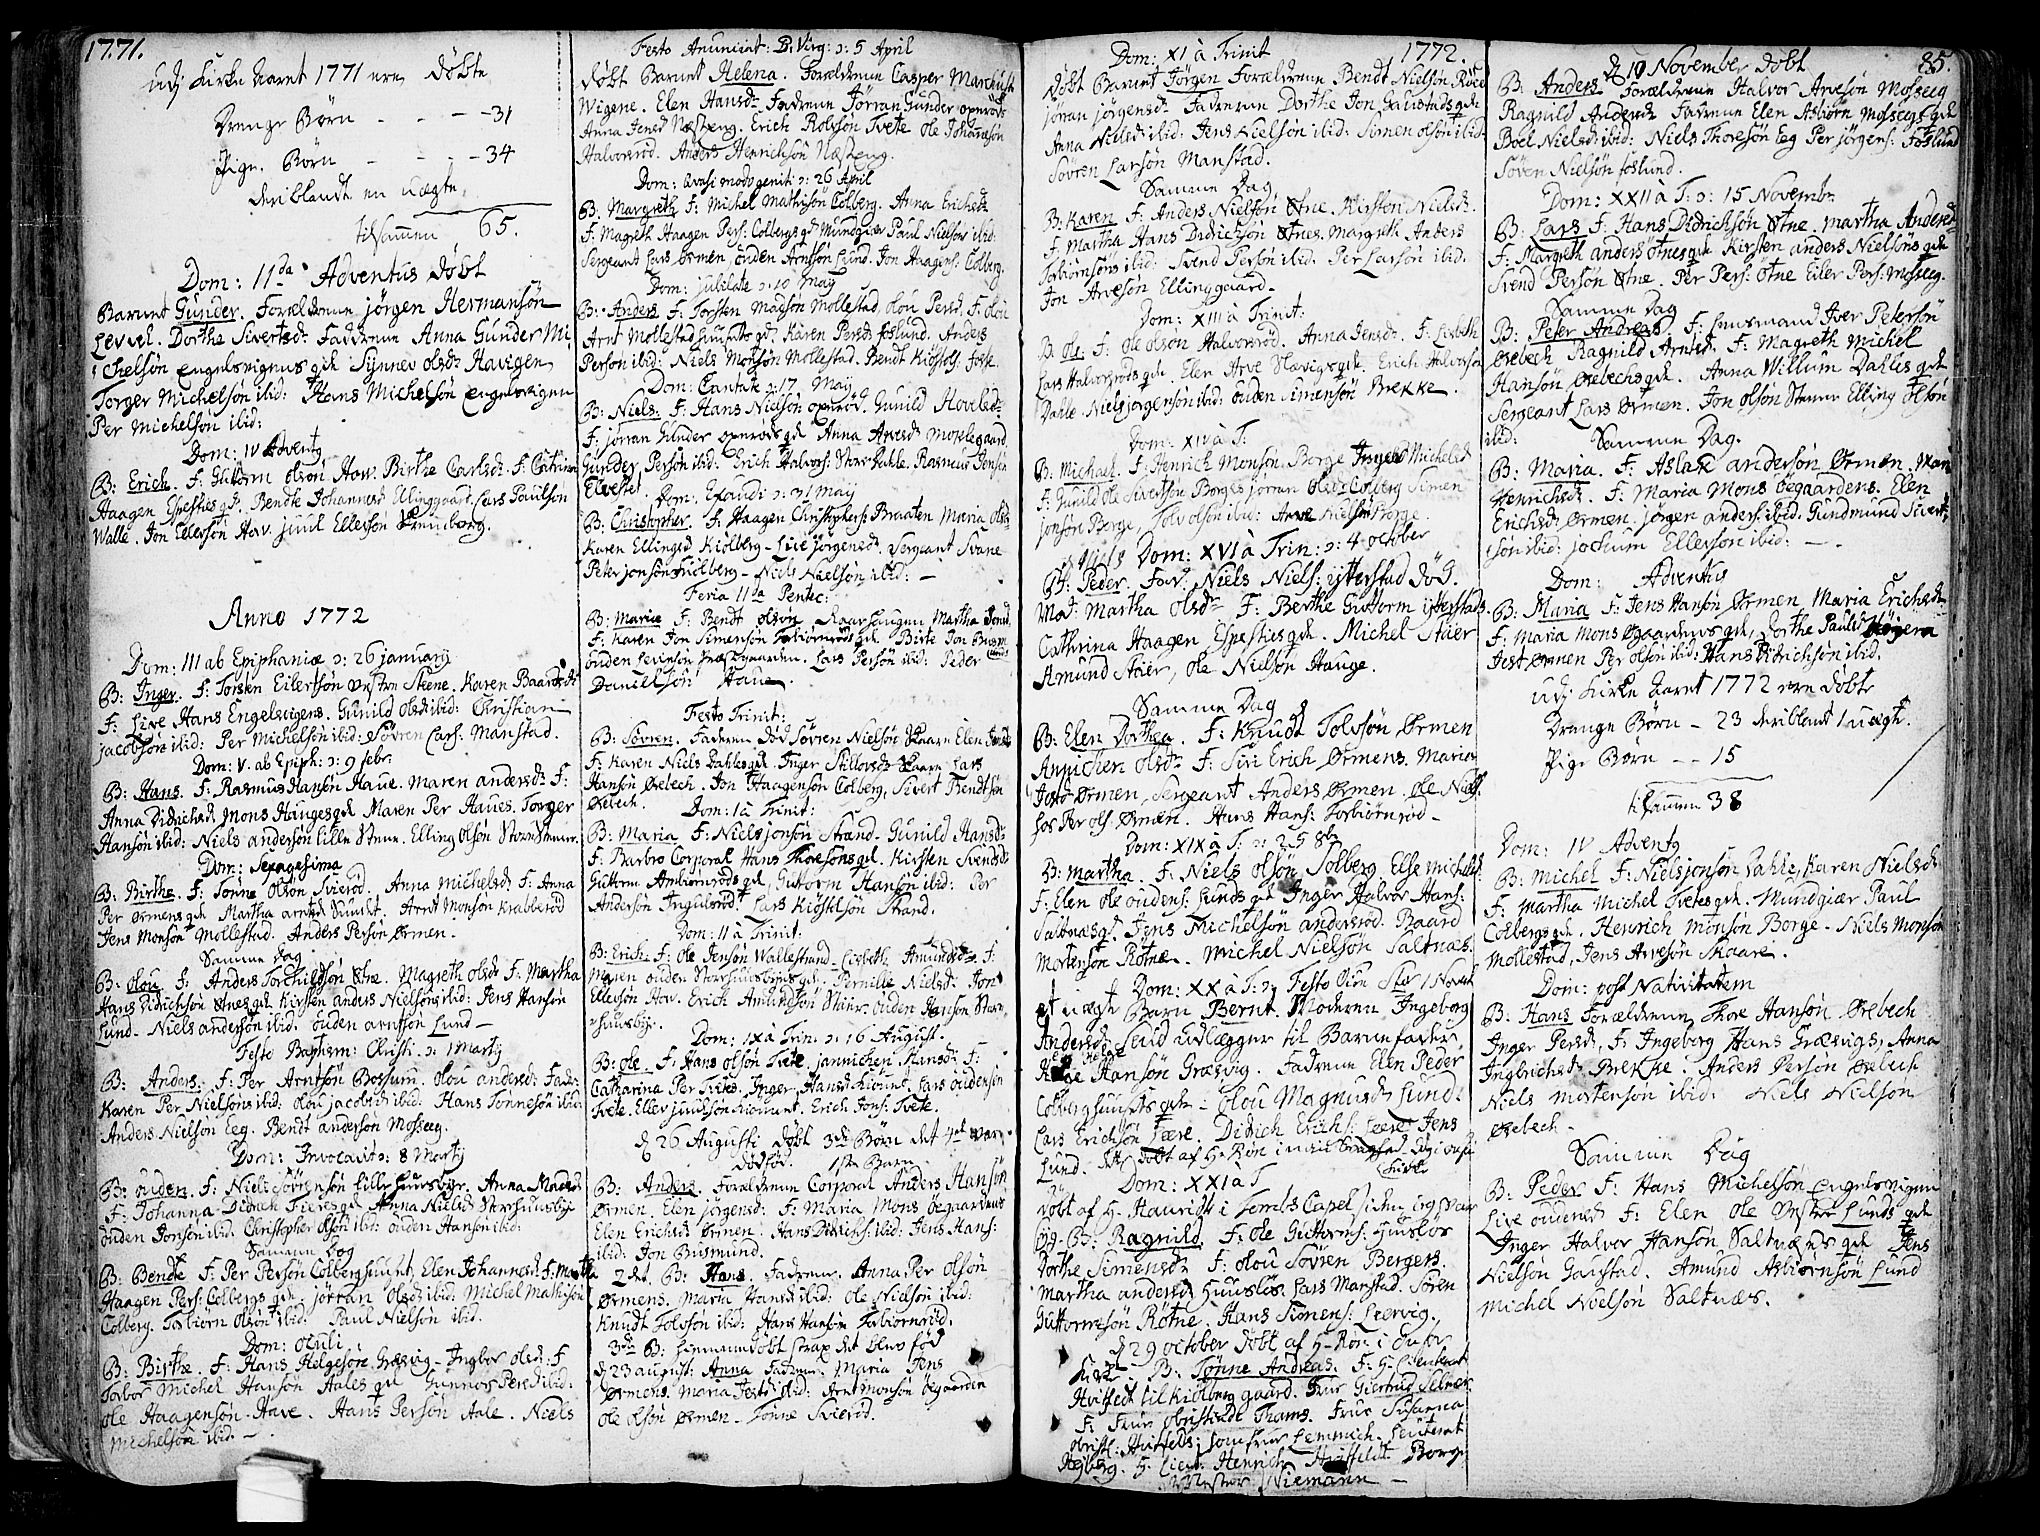 1771.
udj Kirke Aaret 1771 ere döbte
Drenge Börn - - - - 31
Pige Börn - - - - 34
deriblandt en uægte.
tilsammen 65.
Dom: 11da Adventus döbt
Barnet Gunder. Forældrene jörgen Hermansön
Level. Dorthe Sivertsdr. Fadrene Anna Gunder Mi-
chelsön Engelsvignes qd Synnev olsdr Havigen
Torger Michelsön ibid: Hans Michelsön Engelsvigen
Per Michelsön ibid:
Dom: IV Advents
B: Erich. F: Guttorm olsön How. Birthe Carlsdr. F: Catrina
Haagen Espeskies qd. Bendte Johannesd Ellinggaard. Lars Paulsön
Walle. Jon Ellefsön How. juul Ellefsön
Anno 1772
Dom: III ab Epiphaniæ ɔ: 26 januarij
B: Inger. F: Torsten Eilertsön Skene. Karen Baardsdr
F: Live Hans Engelsvigens. Gunild olsdr ibid: Christian
jacobsön ibid: Per Michelsön ibid: Sövren Lars: Manstad.
Dom: V. ab Epiph: ɔ: 9 febr:
B: Hans. F: Rasmus Hansön Haue. Maren andersdr F:
Anna Didrichsd Mons Haugesqd Maren Per Haues. Torger
Hansön ibid: Niels andersön lille Elling olsön
Dom: Sexagesima
B: Birthe. F: Tönne olsön Svieröd. Anna Michelsdr F: Anna
Per Ørmens qd Martha arntsd Sundt. Arnt Monsön Krabberöd
Jens Monsön Mollestad. Anders Persön Ørmen.
Samme Dag
B: olou F: Anders Torchildsön Øtne. Magreth olsdr F: Martha
Hans Didrichsön Øtnes qd Kirsten anders Nielsöns ibid: Jens Hansön
Lund. Niels andersön ibid. ouden arntsön Lund -
Festo Baptism: Christi ɔ: 1 Martij
B: Anders. F: Per Arntsön Bossum. olou andersdr Fadr:
Karen Per Nielsöns ibid: olou jacobsd ibid: Hans Tönnesön ibid:
Anders Nielsön Eeg. Bendt anderson Mosseeg.
Dom: Invocavit ɔ: 8 Martij
B: ouden. F: Niels Sörensön lille huusbye. Anna
F: Johanna Didrich Fieres qd Anna Nielsd Storhuusbye
ouden Jonsön ibid. Christopher olsön ibid: ouden Hansön ibid:
Samme Dag
B: Bendte F: Per Persön Colberghuuset, Elen Johannesd F: Martha
Haagen Pers: Colbergs qd. jörran olsdr ibid: Michel Mathisön
Colberg. Torbiörn olsön ibid: Paul Nielsön ibid.
Dom: oculi
B: Birthe. F: Hans Helgesön Græsvig - Ingbor olsd: F
Torbor Michel Hansön Aales qd Gunnor Persd ibid:
ole Haagensön Have. Hans Persön Aale. Niels
Michelsön ibid. -
Festo Anunciat: B: Virg: ɔ: 5 April
döbt Barnet Helena. Forældrene Casper Marchusö
Wigene. Elen Hansdr. Fadrene Jörran Gunder opnröds
Anna Jensd Næsseng. Erich Rolvsön Tvete ole Johansön
Halvorsröd. Anders Henrichsön Næsseng.
Dom: Qvasi modo geniti ɔ: 26 April
B: Margreth F: Michel Mathisön Colberg. Anna Erichsdr
F: Magreth Haagen Pers: Colbergs qd Mundgiær Paul Nielsöns ibid:
Sergeant Lars Ørmen. ouden Aonsön Lund. Jon Haagens: Colberg.
Dom: jubilate ɔ: 10 Maij
B: Anders F: Torsten Madsön Mollestad olou Persd. F: olou
Arnt Mollestadhuusets qd. Karen Persd foslund. Anders
Persön ibid: Niels Monsön Mollestad. Bendt
Dom: Cantate ɔ: 17 Maij
B: Niels. F: Hans Nielsön opnröd. Gunild Hovelsd
F: jörran Gunder opnröds qd Anna Arvesd
Gunder Persön ibid: Erich Halvors: Store Dahle. Rasmus Jensön
Elvestet.
Dom: Exaudi ɔ: 31 Maij
B: Christopher F: Haagen Christophers: Braaten Maria olsd
Karen Ellingsd Kiölberg - Live jörgensd. Sergeant Svane
Peter jonsön Kiölberg - Niels Nielsön ibid: -
Feria 11da Pentec:
B: Marie F: Bendt olsön Martha
F: Karen Jon Simensön Torbiörnröds qd. Birte Jon
ouden Præstegaarden. Lars Persön ibid: Peder
Danielsön Haue.
Festo Trinit:
B: Sövren. Faderen död Sövren Nielsön Skaare Elen
F: Karen Niels Dahles qd Inger Skaare. Lars
Hansön Ørebech. Jon Haagensön Colberg, Sivert Bendtsön
Ørebech.
Dom: 1 à Trinit:
B: Maria F: Niels jonsön Strand. Gunild Hansdr
F: Barbro Corporal Hans Thoresöns qd. Kirsten Svendsd
Guttorm Ambiörnröds qd, Guttorm Hansön ibid: Per
Andersön Ingulsröd. Lars Strand.
Dom: 11 à Trinit:
B: Erich: F: ole Jensön Wallestrand - Lisbeth Amundsdr F:
Maren ouden qd. Pernille Nielsd. Jon
Ellefsön How. Erich Amundsön ouden Hansön Store
huusbye.
Dom: IX à Trin: ɔ: 16 August:
B: ole. F: Hans olsön Tvete jannichen Hansdr F:
Catharina Per Tvetes. Inger Hansd Lars oudensön
Tvete. Ellef juulsön Erich Jons: Tvete.
d 26 Augusti döbt 3de Börn det 4de var
dödföd. 1ste Barn
B: Anders Forældrene Corporal Anders Hansön
Ørmen. Elen jörgensd. F: Maria Mons Øegaardens
Elen Erichsd Ørmen. Hans Didrichs: ibid: Jens Hans:
ibid: Jon Brismund.
2det B: Hans. Fadrene Anna Per olsön
Ørmens. Maria Hansd ibid: ole Nielsön ibid:
Knudt Tolvsön ibid: Hans Hansön Torbiörnröd.
3de B: hiemmedöbt strax det blev föd
d 23 august: Anna Fadrene Maria Jens
Ørmens. Maria Josts ibid: Arnt Monsön Øegaarden
ole olsön Ørmen - Tönne Svieröd.
Dom: XI à Trinit 1772.
döbt Barnet Jörgen Forældrene Bendt Nielsön Röed
jörran jörgensdr Fadrene Dorthe Jon qd
Anna Nielsd ibid: Jens Nielsön ibid: Simen olsön ibid:
Sövren Larsön Manstad.
Samme Dag
B: Karen F: Anders Nielsön Øtne. Kirsten Nielsdr.
F: Martha Hans Didrichsön Øtnes. Margreth Anders
Torbiörnsöns ibid: Svend Persön ibid: Per Larsön ibid:
Jon Arvesön Ellinggaard.
Dom: XIII à Trinit:
B: ole F: ole olsön Halvorsröd. Anna Jensd. F: Lisbeth
Lars Halvorsröds qd. Elen Arve Slævigs qd. Erich Halvorsön
Dahle. Niels jörgensön ibid: ouden Simensön Brekke.
Dom: XIV à T:
B: Michael F: Henrich Monsön Borge Michelsd
F: Gunild ole Sivertsön Borges jörran olsdr Colberg Simen
jonsön Borge, Tolv olsön ibid: Arve Nielsön Borge.
Dom: XVI à Trin: ɔ: 4 october
B: Peder. Far: Niels Niels: ijtterstad död.
Mat: Martha olsdr F: Berthe Guttorm ijtterstads
Cathrina Haagen Espeskies qd. Michel Staier
Amund Staier, ole Nielsön Hauge.
Samme Dag
B: Elen Dorthea. F: Knudt Tolvsön Ørmen
Annichen olsdr F: Siri Erich Ørmens. Maria
Josts Ørmen, Sergeant Anders Ørmen. ole Niels:
Per ols: Ørmen. Hans Hans: Torbiörnröd -
Dom: XIX à T: ɔ: 25 8br
B: Martha. F: Niels olsön Solberg Else Michelsd:
F: Elen ole oudens: Lunds qd Inger Halvor Hans:
Saltnæs qd. Jens Michelsön andersröd. Baard
Mortensön Rötne. Michel Nielsön Saltnæs.
Dom: XX à T: ɔ: Festo 1 Novebr
et uægte Barn Bernt. Moderen Ingeborg
Andersd Lund udlægger til Barnefader
Helge Hansön Græsvig. Fadrene Elen Peder
Colberghuusets qd - olou Magnusd Lund.
Lars Erichsön Lære. Didrich Erichs: Lære Jens
Lund.
Dom: XXI à T
döbt af H. Haurist i Tombs Capel
B: Ragnild F: ole Guttorms: Huuslös
Dorthe Simensdr F: olou Sövren Bergers.
Martha andersd Huuslös. Lars Manstad. Sören
Guttormsön Rötne. Hans Simens: Leervig.
d 29 october döbt af H. Rön i Onsöe
Kirke. B: Tönne Andreas. F: H. Lieutenant
Hvitfeldt til Kiölberg gaard. Frue Giertrud
F: Frue obristinde Thams. Frue Susanna
obristl: Huitfeldt; jomfrue Lemmich. Leutenat
Hejberg. H. Lieut: Henrich Huitfeldt Borg-
mester Niemann -
85.
d 10 November döbt
B: Anders Forældrene Halvor Arvesön Mosseeg
Ragnild Andersd Fadrene Elen Asbiörn Mosseegs qd
Boel Nielsd ibid: Niels Thoresön Eeg Per jörgens: Foslund
Söven Nielsön foslund.
Dom: XXII à T: ɔ: 15 Novembr
B: Lars F: Hans Didrichsön Øtne. Martha Andersd
F: Margreth anders Øtnes qd Kirsten anders Nielsöns qd
Svend Persön Øtne. Per Pers: Øtne Eiler Pers: Mosseeg.
Samme Dag
B: Peter Andreas F: Huusmand Iver Petersön
Ørebech Ragnild Arnesd. F: Magreth Michel
Hansön Ørebechs qd. Anna Willum Dahles qd
Sergeant Lars Ørmen. Jon olsön Elling olsön
ibid:
Samme Dag.
B: Maria. F: Aslak andersön Ørmen. Mari
Henrichsdr. F: Maria Mons Øegaardens. Elen
Erichsdr Ørmen. jörgen anders: ibid. Gundmund Sivert-
sön ibid: jochum Ellevsön ibid: -
Dom: Adventus
B: Maria F: Jens Hansön Ørmen Maria Erichsdr
F: Maria Mons Øgaardens qd, Dorthe Pauls
Jost Ørmen Per olsön ibid: Hans Didrichsön ibid.
udj Kirke Aaret 1772 ere döbte
Drenge Börn - 23 deriblant 1 uægt.
Pige Börn - - 15
tilsammen 38
Dom: IV Advents
B: Michel F: Niels jonsön Dahle, Karen Nielsdr
F: Martha Michel Tvetes qd. Mundgiær Paul
Colbergs qd. Henrich Monsön Borge - Niels Monsön
Mollestad, Jens Arvesön Skaare.
Dom: post Nativitatem
B: Hans Forældrene Thore Hansön Ørebech
Inger Persd, F: Ingeborg Hans Græsvigs, Anna
Ingbrichsd Brekke. Anders Persön Ørebech
Niels Mortensön ibid: Niels Nielsön
Ørebech -
Samme Dag
B: Peder F: Hans Michelsön Engelsvigen
Live oudensd F: Elen ole Vester Lunds qd
Inger Halvor Hansön Saltnæs qd Jens
Nielsön Gaustad. Amund Asbiörnsön Lund
Michel Nielsön Saltnæs.